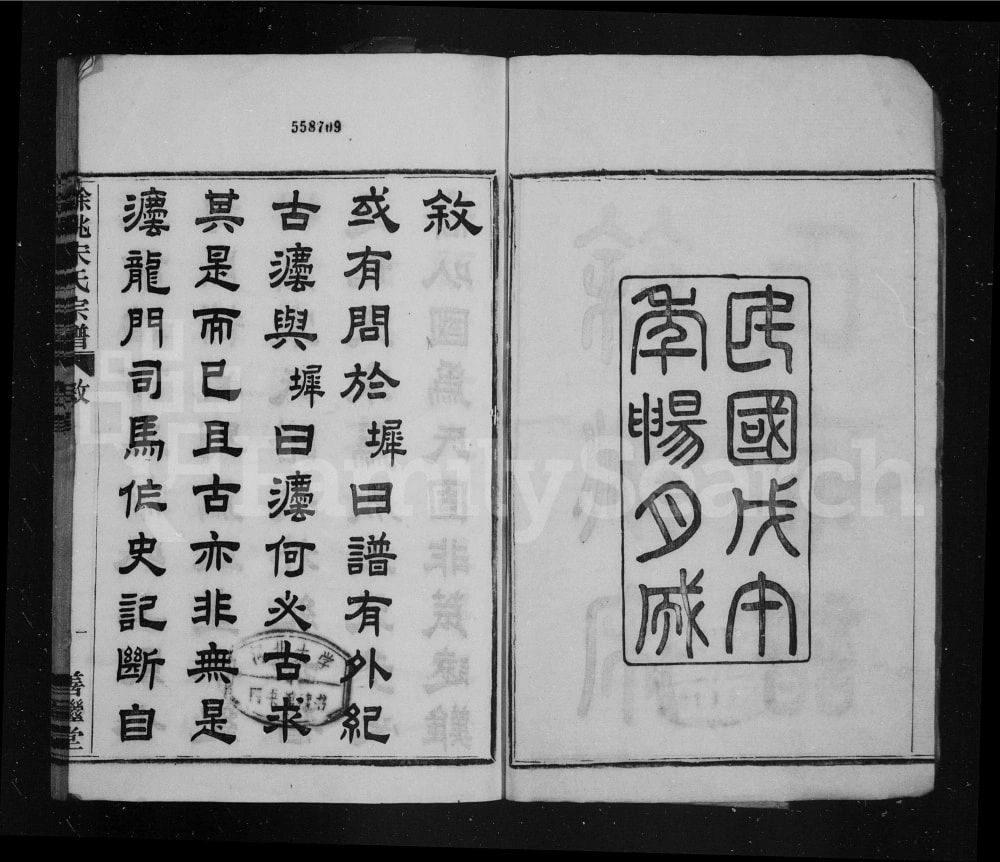 民國戊午
年暘月成
558709
敘
或有問於墀曰譜有外紀
古灋與墀曰灋何必古求
其是而已且古亦非無是
灋龍門司馬作史記斷自
餘姚宋氏宗譜 敘 一 善繼堂
FamilySearch